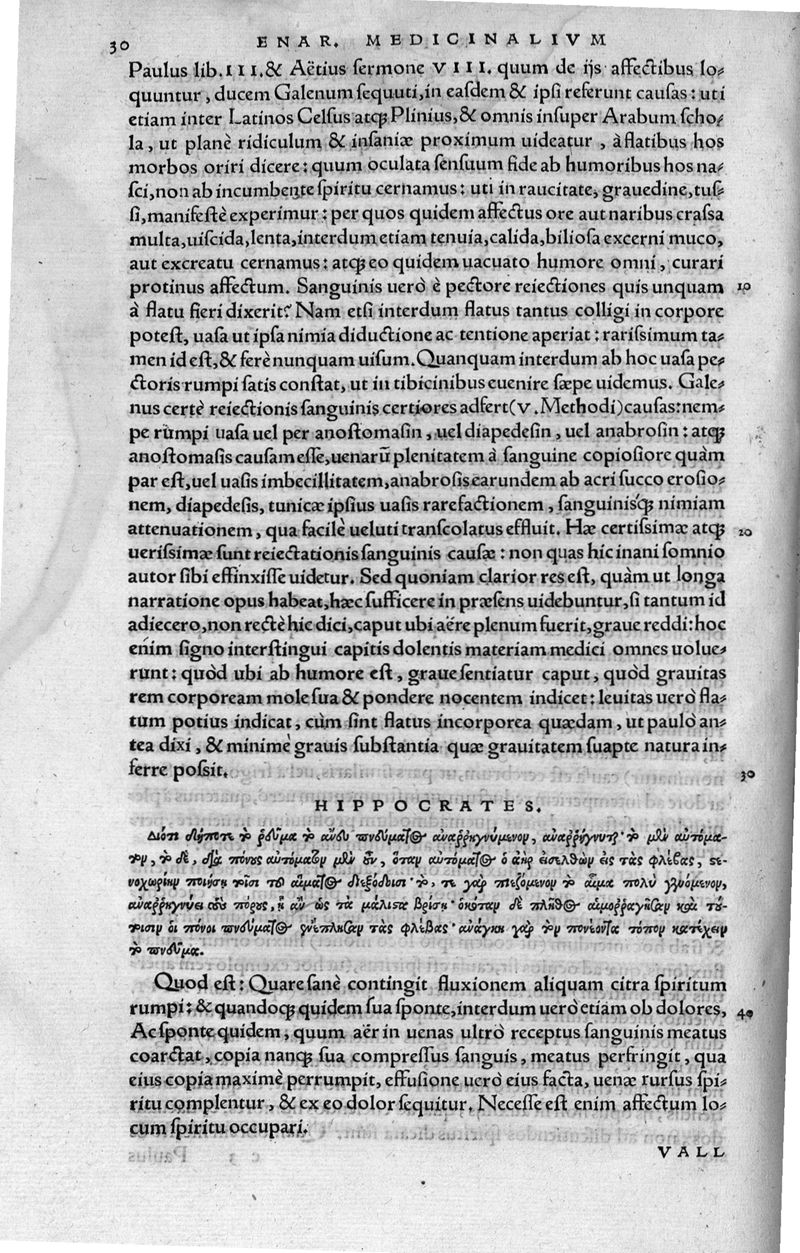 30 ENAR. MEDICINALIVM
Paulus lib. III. & Aëtius sermone VIII. quum de ijs affectibus lo-
quuntur, ducem Galenum sequuti, in easdem & ipsi referunt causas: uti
etiam inter Latinos Celsus atq; Plinius, & omnis insuper Arabum scho-
la, ut planè ridiculum & insaniæ proximum uideatur, à flatibus hos
morbos oriri dicere: quum oculata sensuum fide ab humoribus hos na-
sci, non ab incumbente spiritu cernamus: uti in raucitate, grauedine, tus-
si, manifestè experimur: per quos quidem affectus ore aut naribus crassa
multa, uiscida, lenta, interdum etiam tenuia, calida, biliosa excerni muco,
aut excreatu cernamus: atq; eo quidem uacuato humore omni, curari
protinus affectum. Sanguinis uerò è pectore reiectiones quis unquam 10
à flatu fieri dixerit? Nam etsi interdum flatus tantus colligi in corpore
potest, uasa ut ipsa nimia diductione ac tentione aperiat: rarissimum ta-
men id est, & ferè nunquam uisum. Quanquam interdum ab hoc uasa pe-
ctoris rumpi satis constat, ut in tibicinibus euenire sæpe uidemus. Gale-
nus certè reiectionis sanguinis certiores adfert (V. Methodi) causas: nem-
pe rumpi uasa uel per anostomasin, uel diapedesin, uel anabrosin: atq;
anostomasis causam esse, uenarū plenitatem à sanguine copiosiore quàm
par est, uel uasis imbecillitatem, anabrosis earundem ab acri succo erosio-
nem, diapedesis, tunicæ ipsius uasis rarefactionem, sanguinisq́; nimiam
attenuationem, qua facilè ueluti transcolatus effluit. Hæ certissimæ atq; 20
uerissimæ sunt reiectationis sanguinis causæ: non quas hic inani somnio
autor sibi effinxisse uidetur. Sed quoniam clarior res est, quàm ut longa
narratione opus habeat, hæc sufficere in præsens uidebuntur, si tantum id
adiecero, non rectè hic dici, caput ubi aëre plenum fuerit, graue reddi: hoc
enim signo interstingui capitis dolentis materiam medici omnes uolue-
runt: quòd ubi ab humore est, graue sentiatur caput, quòd grauitas
rem corpoream mole sua & pondere nocentem indicet: leuitas uerò fla-
tum potius indicat, cùm sint flatus incorporea quædam, ut paulò an-
tea dixi, & minimè grauis substantia quæ grauitatem suapte natura in-
ferre possit. 30
HIPPOCRATES.
Διότι δήποτε τὸ ῥεῦμα τὸ ἄνευ πνεύματος ἀναρρηγνύμενον, ἀναρρήγνυται τὸ μὲν αὐτόμα-
τον, τὸ δὲ, διὰ πόνους αὐτόματον μὲν οὖν, ὅταν αὐτόματος ὁ ἀὴρ εἰσελθὼν εἰς τὰς φλέβας, στε-
νοχωρίην ποιήσῃ τῇσι τοῦ αἵματος διεξόδοισι· τό, τε γὰρ πιεζόμενον τὸ αἷμα πολὺ γενόμενον,
ἀναρρηγνύει τοὺς πόρους, ᾗ ἂν ὡς τὰ μάλιστα βρίσῃ· ὁκόταν δὲ πλῆθος αἱμορραγήσαν καὶ τού-
τοισιν οἱ πόνοι πνεύματος ἐνέπλησαν τὰς φλέβας· ἀνάγκη γὰρ τὸν πονέοντα τόπον κατέχειν
τὸ πνεῦμα.
Quod est: Quare sanè contingit fluxionem aliquam citra spiritum
rumpi: & quandoq; quidem sua sponte, interdum uerò etiam ob dolores, 40
Ac sponte quidem, quum aër in uenas ultrò receptus sanguinis meatus
coarctat, copia nanq; sua compressus sanguis, meatus perfringit, qua
eius copia maximè perrumpit, effusione uerò eius facta, uenæ rursus spi-
ritu complentur, & ex eo dolor sequitur. Necesse est enim affectum lo-
cum spiritu occupari.
VALL